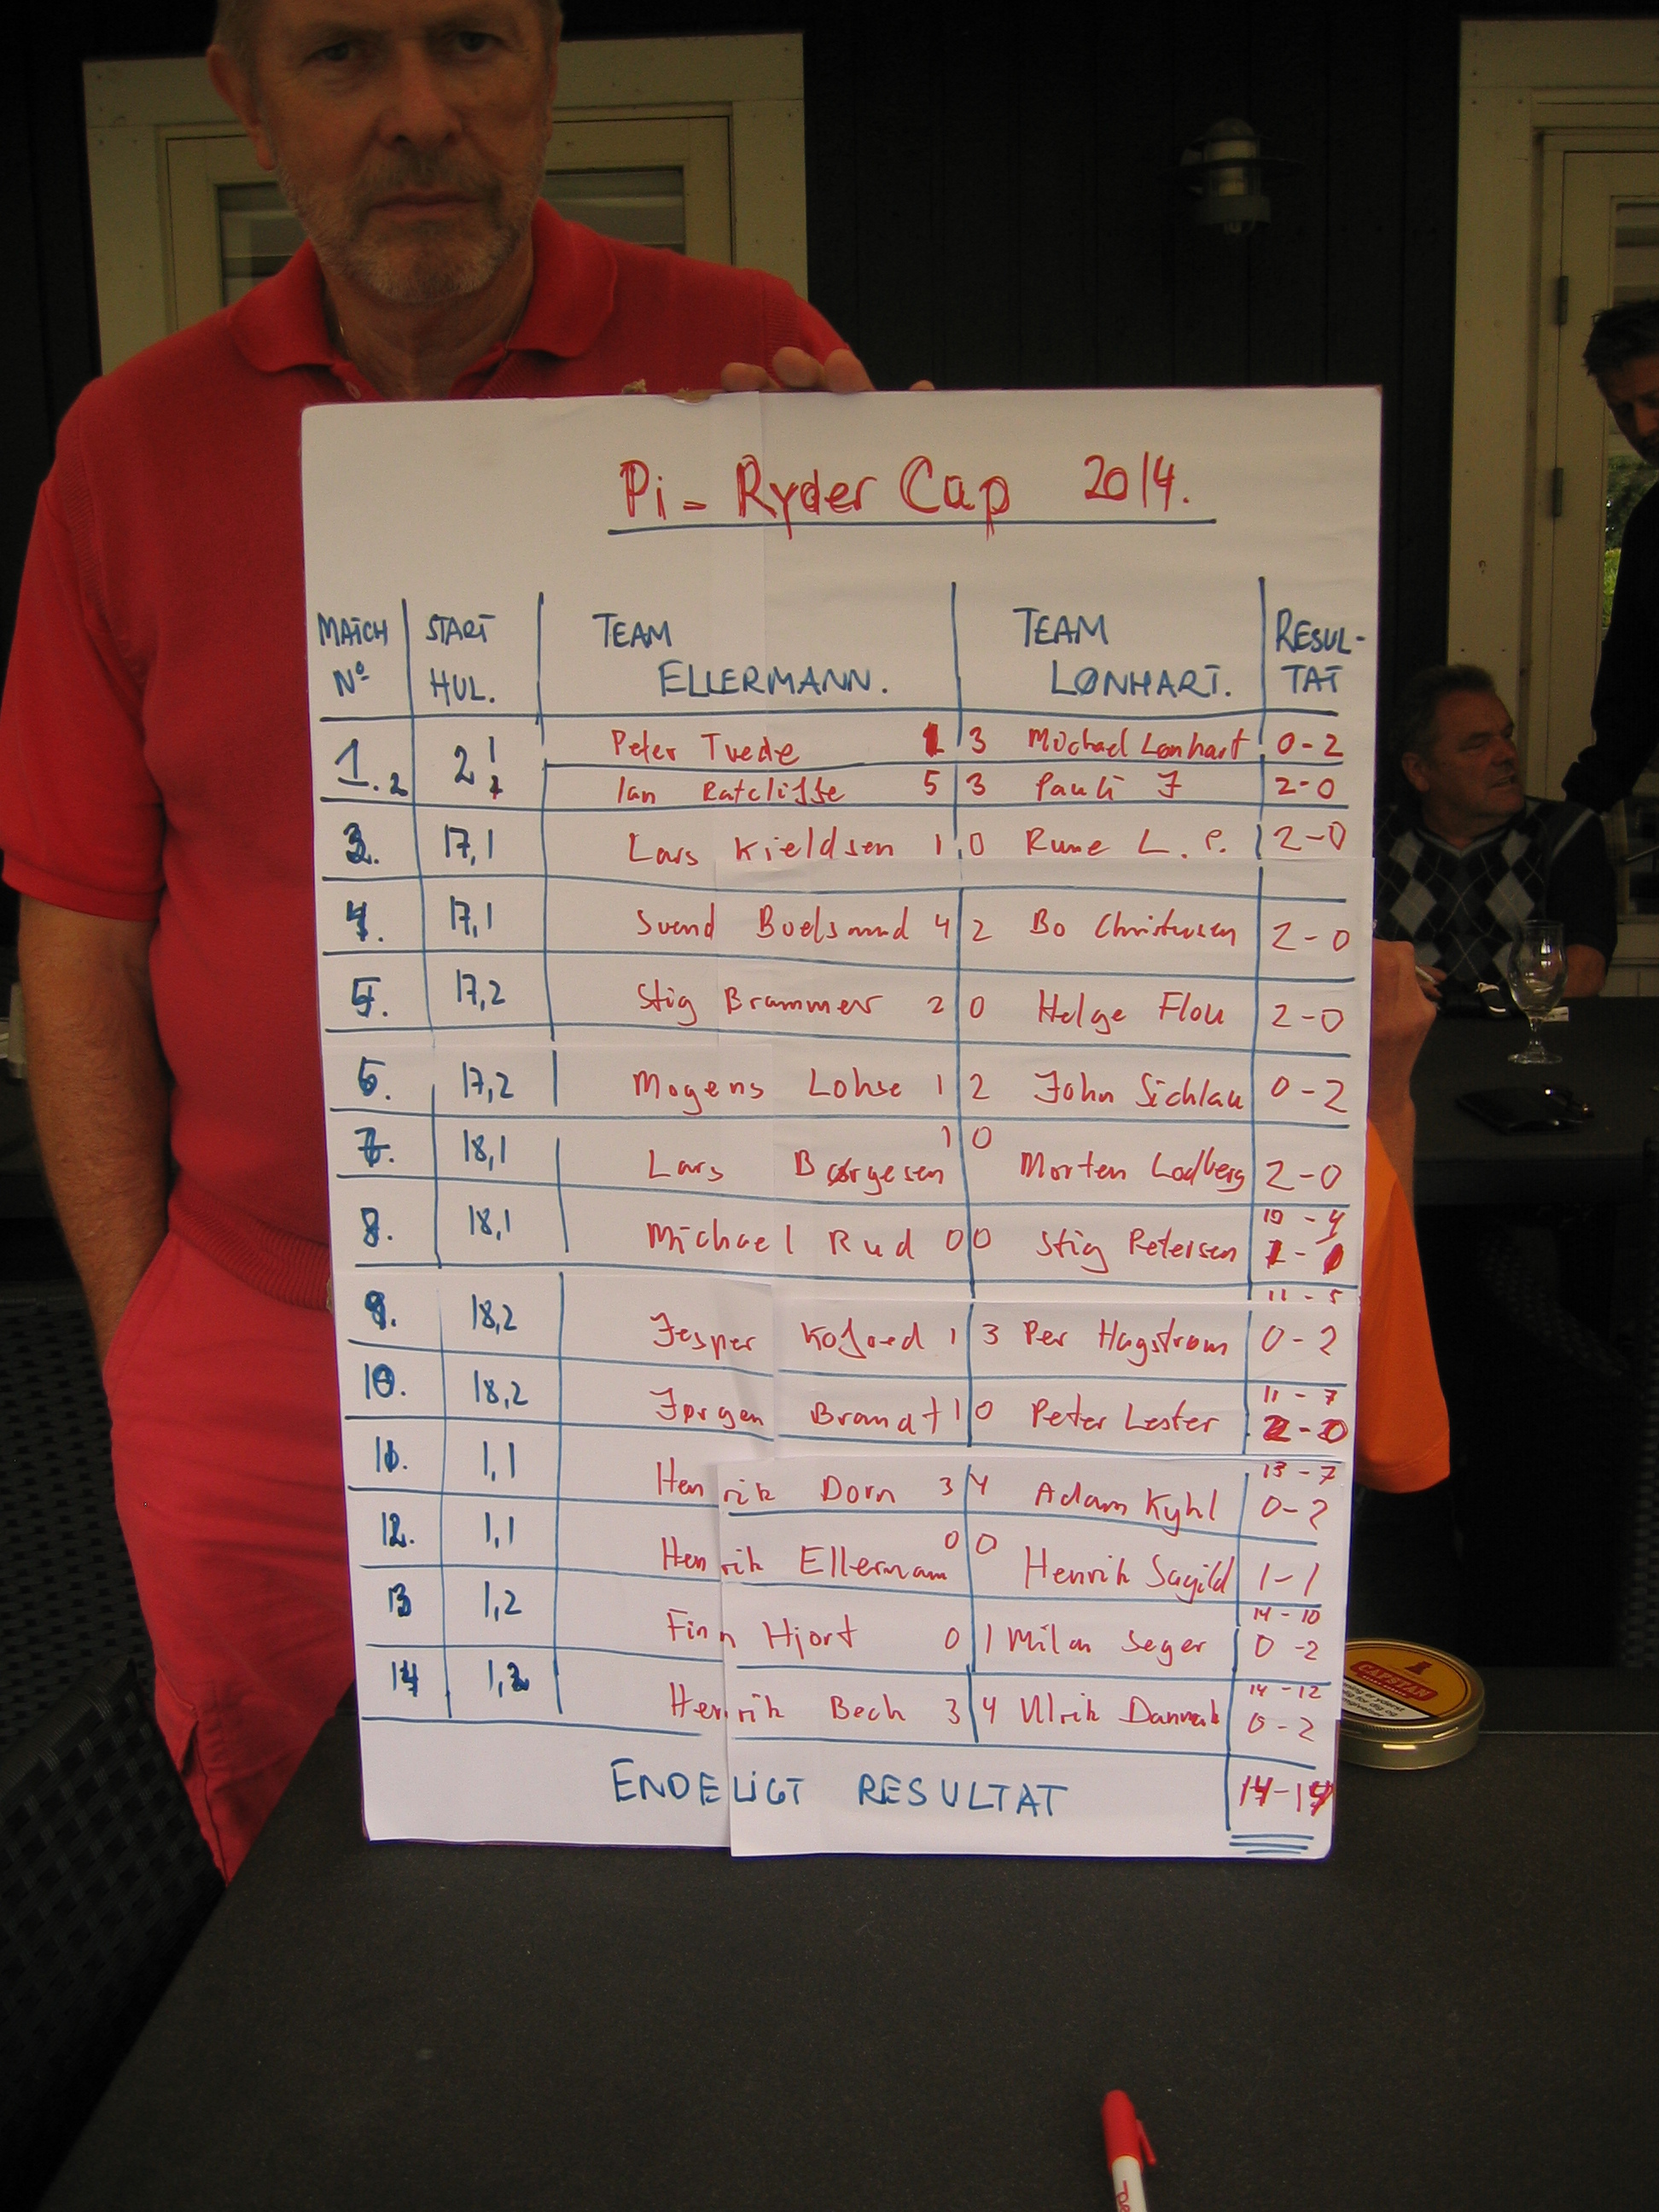 Pi - Ryder Cap 2014.
MATCH START TEAM TEAM RESUL-
Nº HUL. ELLERMANN. LØNHART. TAT
1. 2 1 Peter Tvede 1 3 Michael Lønhart 0-2
2 Ian Ratcliffe 5 3 Pauli J 2-0
3. 17,1 Lars Kieldsen 1 0 Rune L. P. 2-0
4. 17,1 Svend Buelsmnd 4 2 Bo Christensen 2-0
5. 17,2 Stig Brammer 2 0 Helge Flou 2-0
6. 17,2 Mogens Lohse 1 2 John Sichlau 0-2
7. 18,1 Lars Børgesen 1 0 Morten Lodberg 2-0
10 - 4
8. 18,1 Michael Rud 0 0 Stig Petersen 1-1
11 - 5
9. 18,2 Jesper Kofoed 1 3 Per Hagstrøm 0-2
11 - 7
10. 18,2 Jørgen Brandt 1 0 Peter Lester 2-0
13 - 7
11. 1,1 Henrik Dorn 3 4 Adam Kyhl 0-2
12. 1,1 Henrik Ellermann 0 0 Henrik Sagild 1-1
14 - 10
13 1,2 Finn Hjort 0 1 Milan Seger 0-2
14 - 12
14 1,2 Henrik Bech 3 4 Ulrik Dannesk 0-2
ENDELIGT RESULTAT 14-14
CAPSTAN